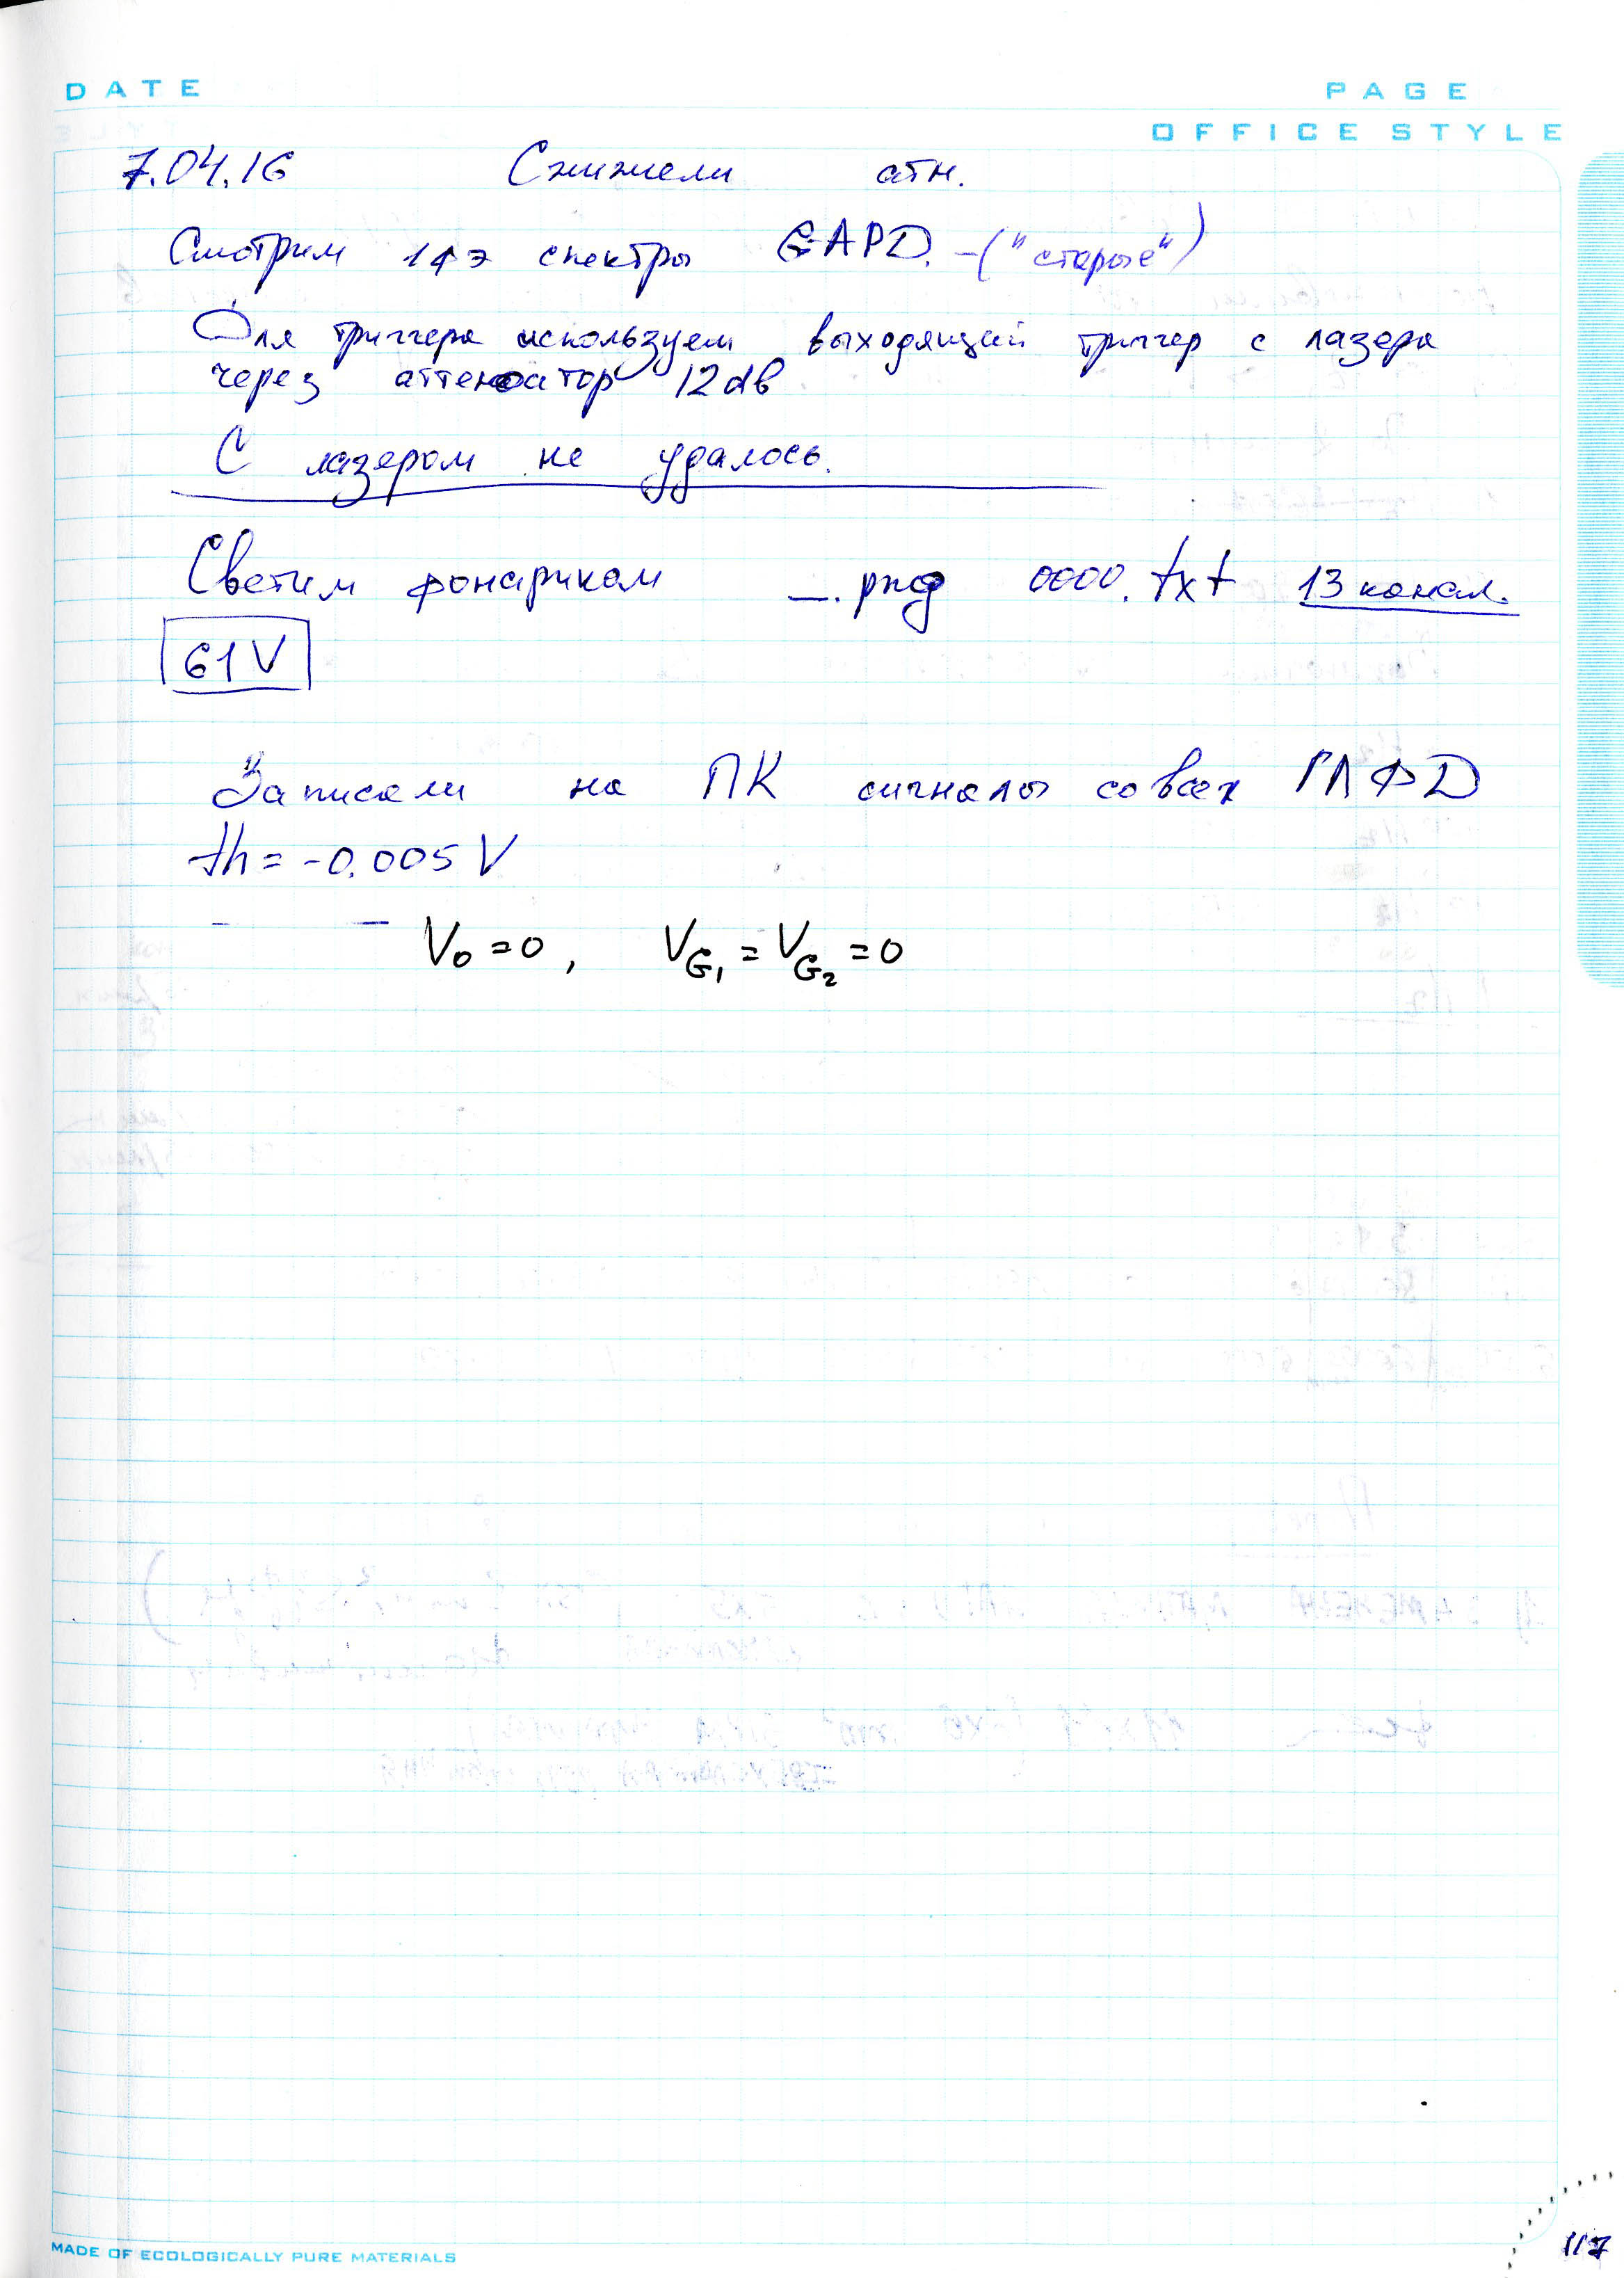 DATE
PAGE
OFFICE STYLE
7.04.16 Сжижели атн.
Смотрим 1фэ спектры GAPD. - ("старые")
Для триггера используем выходящий триггер с лазера
через аттенюатор 12 db
С лазером не удалось.
Светим фонариком _.png 0000.txt 13 канал.
61V
Записали на ПК сигналы со всех ГЛФД
th = -0.005 V
V0 = 0, VG1 = VG2 = 0
MADE OF ECOLOGICALLY PURE MATERIALS
117